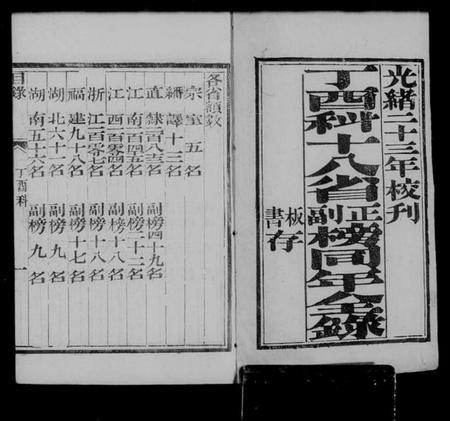 光緒二十三年校刊
丁酉科十八省正副榜同年全錄
書板存
各省額數
宗室五名
繙譯十三名
直隸百八名 副榜四十九名
江南百四五名 副榜二十二名
江西百零四名 副榜十八名
浙江百零七名 副榜十八名
福建九十八名 副榜十七名
湖北六十一名 副榜九名
湖南五十六名 副榜九名
目錄 丁酉科 一